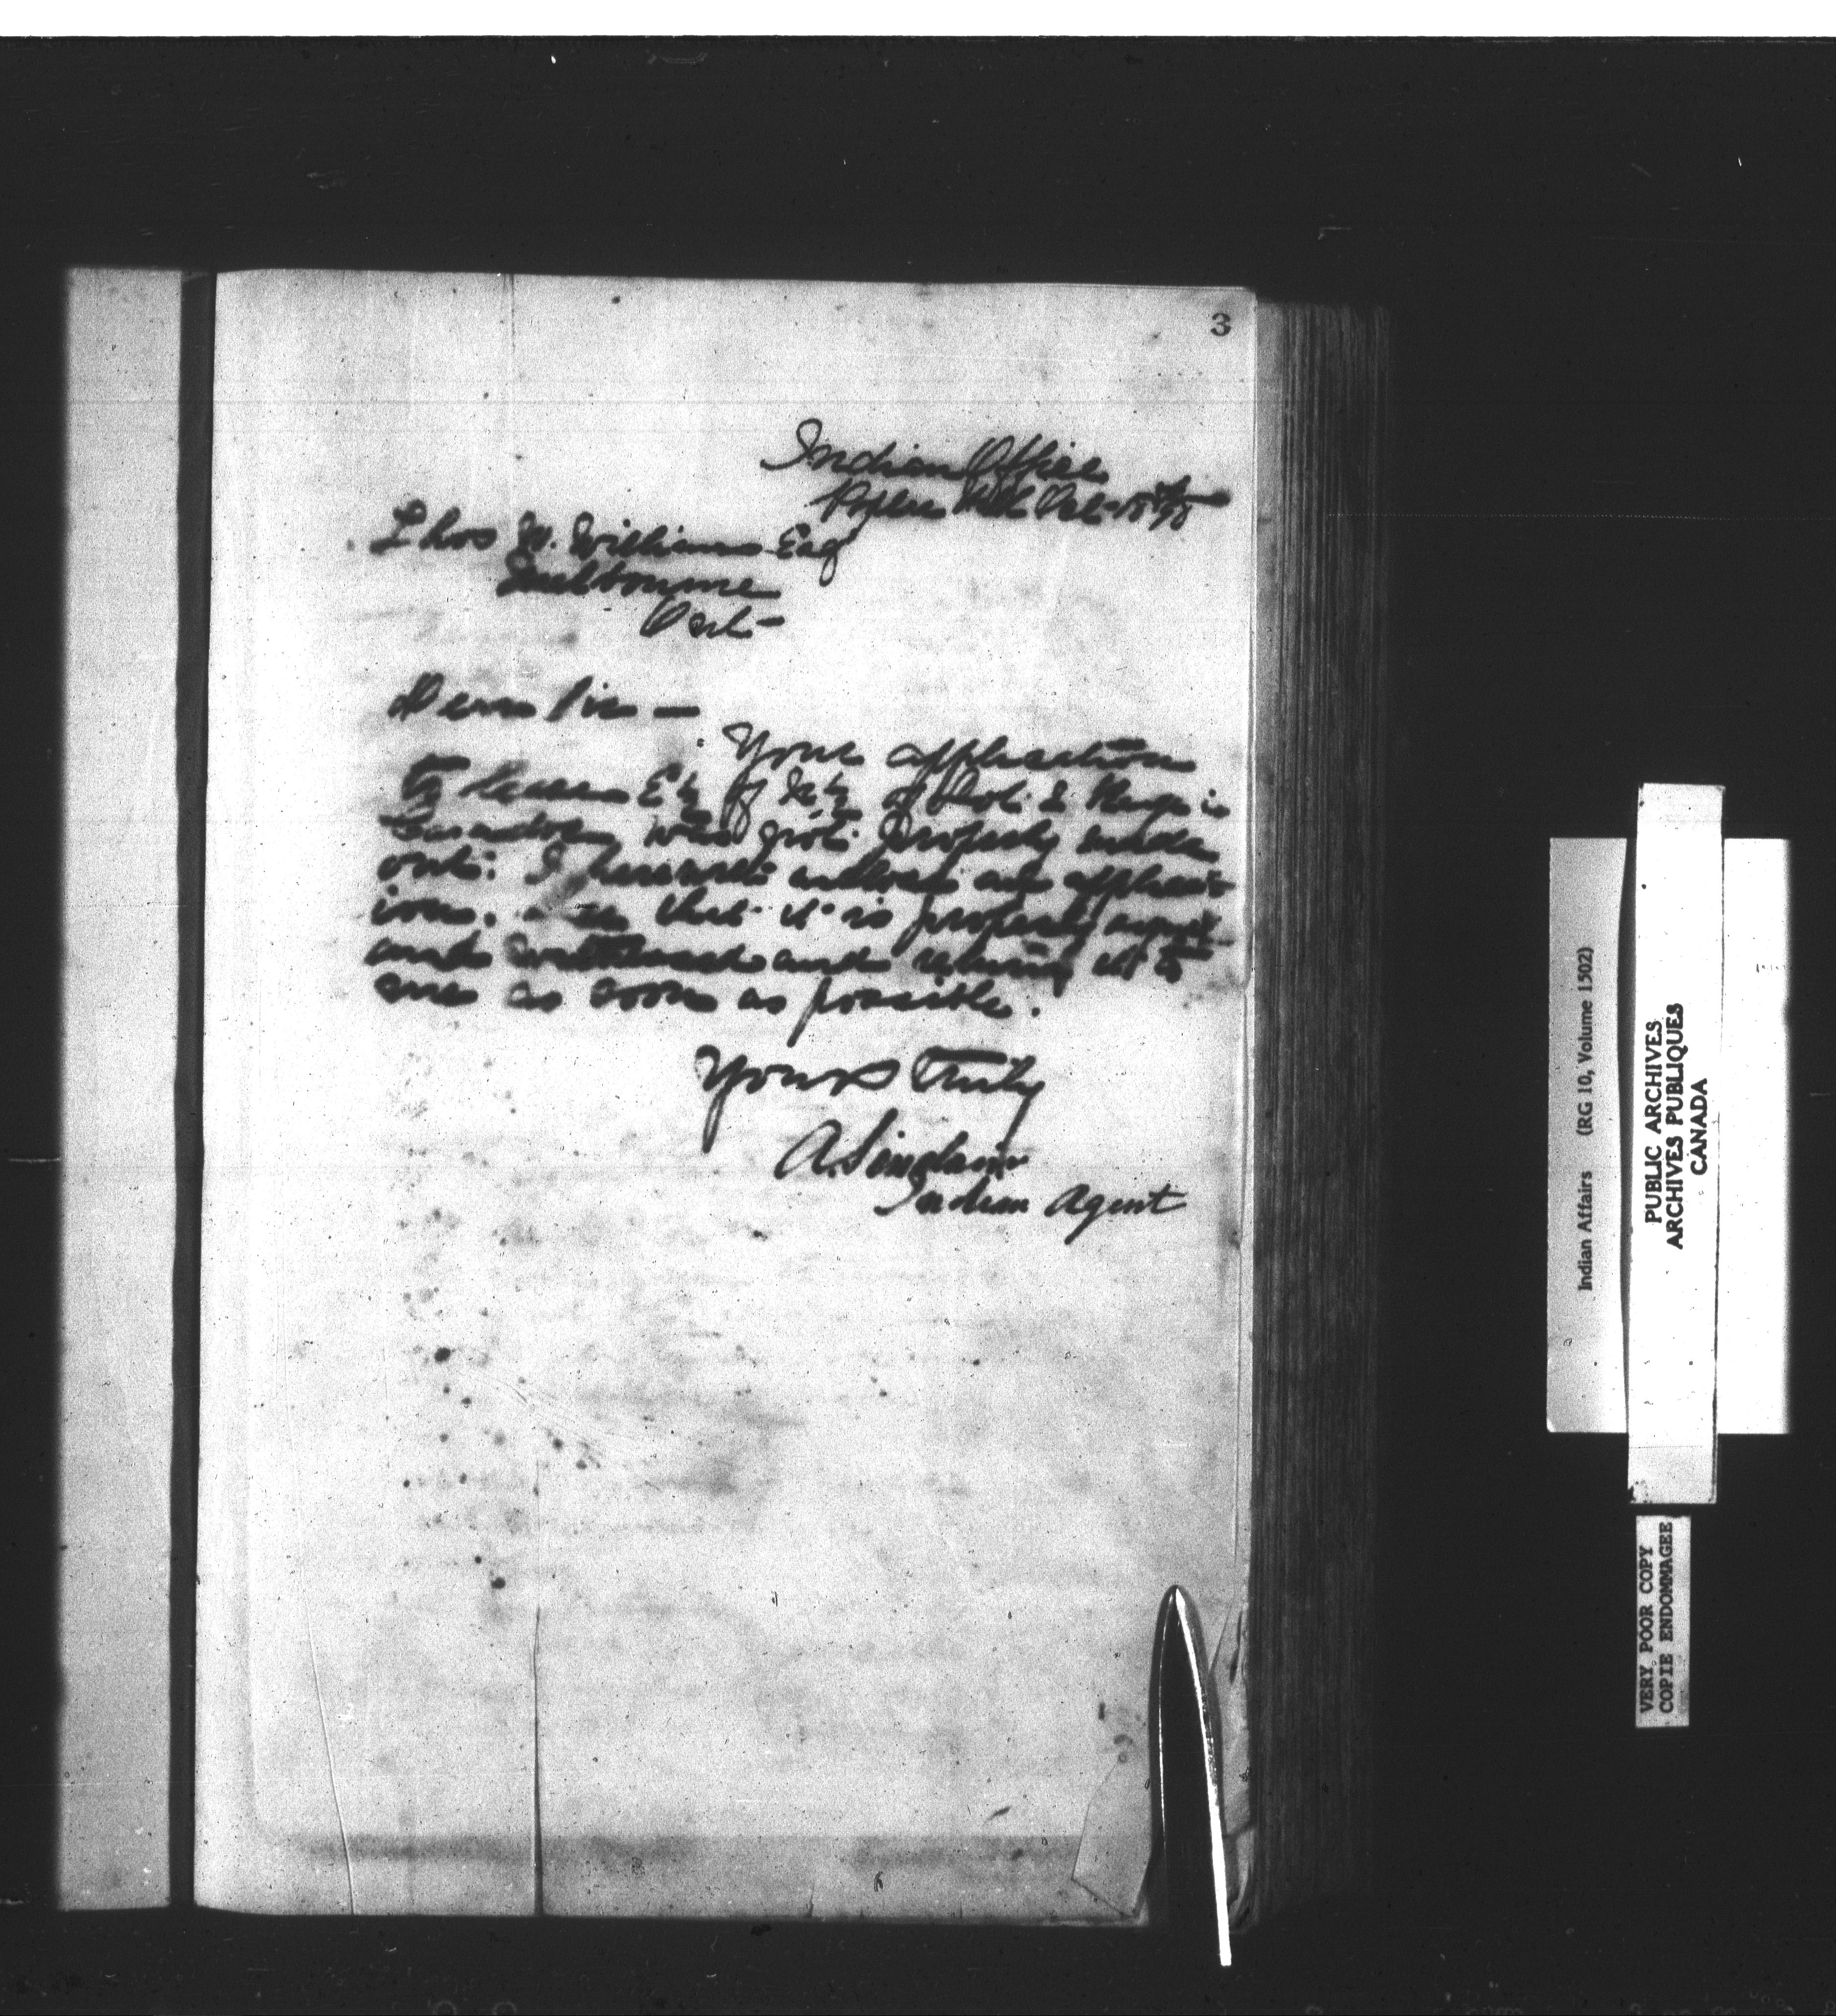 3
Indian Office
Oct 18th/98
Thos W. Williams Esq
Melbourne
Ont-
Dear Sir —
Your application
to lease E½ of N½ of Lot 2 Range
Caradoc was not properly made
out. I herewith enclose an applicat
ion. See that it is properly signed
and witnessed and return it to
me as soon as possible.
Yours truly
A. Sinclair
Indian Agent
Indian Affairs (RG 10, Volume 1502)
PUBLIC ARCHIVES
ARCHIVES PUBLIQUES
CANADA
VERY POOR COPY
COPIE ENDOMMAGEE